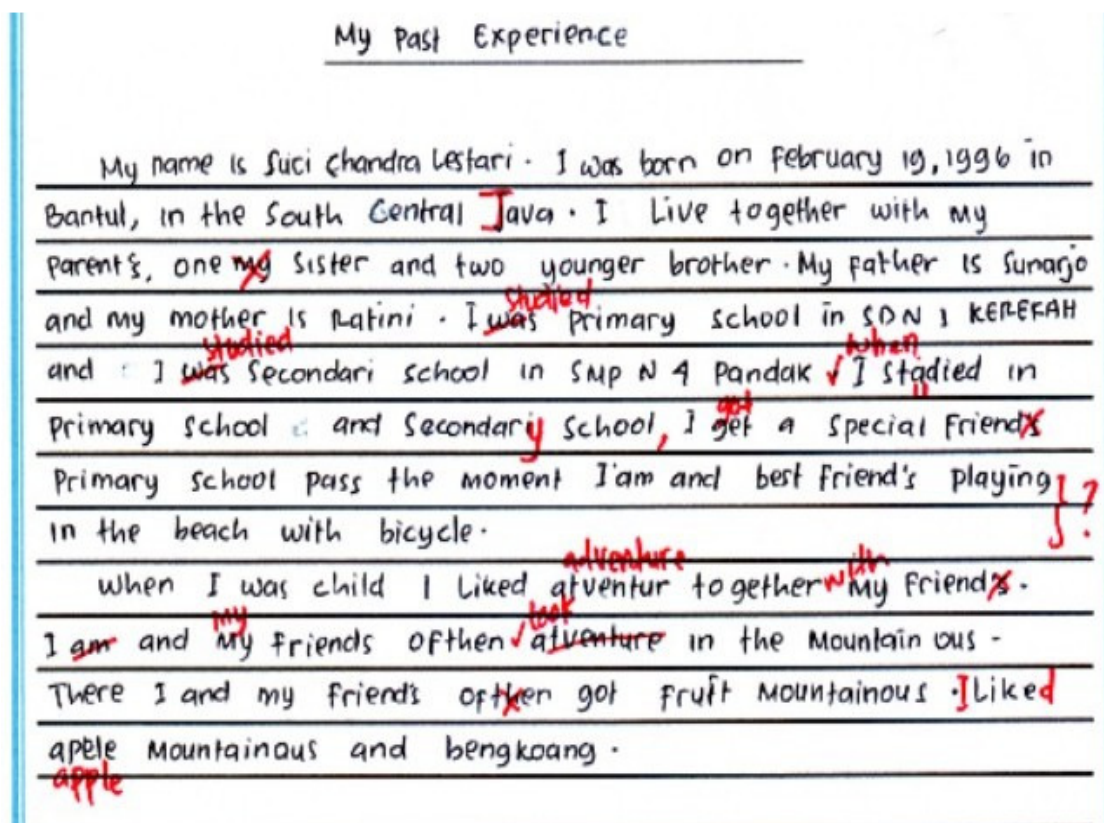 My Past Experience
My name is Suci Chandra Lestari. I was born on February 19, 1996 in
Bantul, in the South Central Java. I Live together with my
parent's, one my Sister and two younger brother. My father is Sunarjo
studied
and my mother is Ratini. I was primary school in SDN 1 KEREKAH
studied when
and I was Secondari school in SMP N 4 Pandak √ I stadied in
got
primary school and Secondary School, I get a special Friend's
Primary school pass the moment I'am and best friend's playing ?
in the beach with bicycle.
adventure with
when I was child I Liked atventur together my Friend's.
my took
I am and My friends ofthen √ atventure in the Mountain ous -
There I and my friend's ofthen got Fruit Mountainous. I Liked
apele Mountainous and bengkoang.
apple